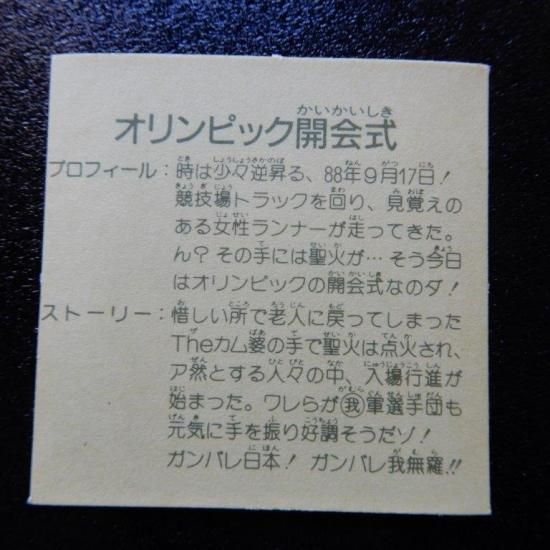 オリンピック開会式
プロフィール：時は少々逆昇る、88年9月17日！
競技場トラックを回り、見覚えの
ある女性ランナーが走ってきた。
ん？その手には聖火が…そう今日
はオリンピックの開会式なのダ！
ストーリー：惜しい所で老人に戻ってしまった
Theカム婆の手で聖火は点火され、
ア然とする人々の中、入場行進が
始まった。ワレらが我軍選手団も
元気に手を振り好調そうだゾ！
ガンバレ日本！ ガンバレ我無羅!!